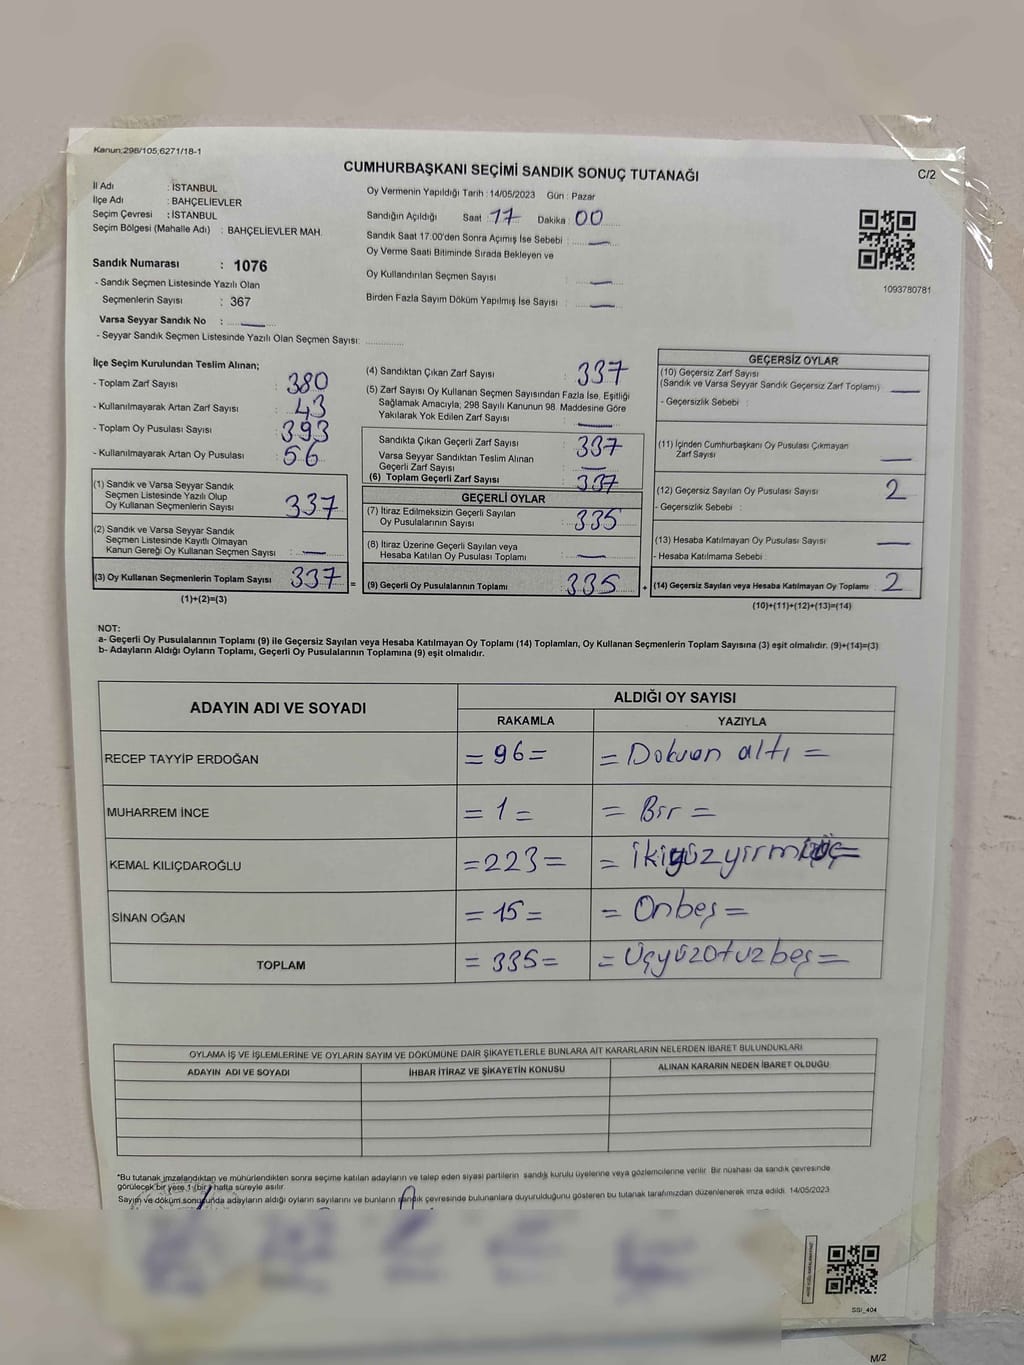 Kanun;298/105;6271/18-1
CUMHURBAŞKANI SEÇİMİ SANDIK SONUÇ TUTANAĞI
C/2
İl Adı : İSTANBUL
İlçe Adı : BAHÇELİEVLER
Seçim Çevresi : İSTANBUL
Seçim Bölgesi (Mahalle Adı) : BAHÇELİEVLER MAH.
Oy Vermenin Yapıldığı Tarih : 14/05/2023 Gün : Pazar
Sandığın Açıldığı Saat : 17 Dakika : 00
Sandık Saat 17:00'den Sonra Açımış İse Sebebi : —
Oy Verme Saati Bitiminde Sırada Bekleyen ve
Oy Kullandırılan Seçmen Sayısı : —
Birden Fazla Sayım Döküm Yapılmış İse Sayısı : —
1093780781
Sandık Numarası : 1076
- Sandık Seçmen Listesinde Yazılı Olan
Seçmenlerin Sayısı : 367
Varsa Seyyar Sandık No : —
- Seyyar Sandık Seçmen Listesinde Yazılı Olan Seçmen Sayısı: ..............
İlçe Seçim Kurulundan Teslim Alınan;
- Toplam Zarf Sayısı : 380
- Kullanılmayarak Artan Zarf Sayısı : 43
- Toplam Oy Pusulası Sayısı : 393
- Kullanılmayarak Artan Oy Pusulası : 56
(1) Sandık ve Varsa Seyyar Sandık
Seçmen Listesinde Yazılı Olup
Oy Kullanan Seçmenlerin Sayısı : 337
(2) Sandık ve Varsa Seyyar Sandık
Seçmen Listesinde Kayıtlı Olmayan
Kanun Gereği Oy Kullanan Seçmen Sayısı : —
(3) Oy Kullanan Seçmenlerin Toplam Sayısı 337 =
(1)+(2)=(3)
(4) Sandıktan Çıkan Zarf Sayısı : 337
(5) Zarf Sayısı Oy Kullanan Seçmen Sayısından Fazla İse, Eşitliği
Sağlamak Amacıyla, 298 Sayılı Kanunun 98. Maddesine Göre
Yakılarak Yok Edilen Zarf Sayısı : —
Sandıkta Çıkan Geçerli Zarf Sayısı : 337
Varsa Seyyar Sandıktan Teslim Alınan
Geçerli Zarf Sayısı : —
(6) Toplam Geçerli Zarf Sayısı : 337
GEÇERLİ OYLAR
(7) İtiraz Edilmeksizin Geçerli Sayılan
Oy Pusulalarının Sayısı : 335
(8) İtiraz Üzerine Geçerli Sayılan veya
Hesaba Katılan Oy Pusulası Toplamı : —
(9) Geçerli Oy Pusulalarının Toplamı : 335 +
GEÇERSİZ OYLAR
(10) Geçersiz Zarf Sayısı
(Sandık ve Varsa Seyyar Sandık Geçersiz Zarf Toplamı) —
- Geçersizlik Sebebi :
(11) İçinden Cumhurbaşkanı Oy Pusulası Çıkmayan
Zarf Sayısı —
(12) Geçersiz Sayılan Oy Pusulası Sayısı 2
- Geçersizlik Sebebi :
(13) Hesaba Katılmayan Oy Pusulası Sayısı —
- Hesaba Katılmama Sebebi :
(14) Geçersiz Sayılan veya Hesaba Katılmayan Oy Toplamı : 2
(10)+(11)+(12)+(13)=(14)
NOT:
a- Geçerli Oy Pusulalarının Toplamı (9) ile Geçersiz Sayılan veya Hesaba Katılmayan Oy Toplamı (14) Toplamları, Oy Kullanan Seçmenlerin Toplam Sayısına (3) eşit olmalıdır. (9)+(14)=(3)
b- Adayların Aldığı Oyların Toplamı, Geçerli Oy Pusulalarının Toplamına (9) eşit olmalıdır.
ADAYIN ADI VE SOYADI
ALDIĞI OY SAYISI
RAKAMLA YAZIYLA
RECEP TAYYİP ERDOĞAN = 96 = = Doksan altı =
MUHARREM İNCE = 1 = = Bir =
KEMAL KILIÇDAROĞLU = 223 = = ikiyüzyirmiüç =
SİNAN OĞAN = 15 = = Onbeş =
TOPLAM = 335 = = Üçyüzotuzbeş =
OYLAMA İŞ VE İŞLEMLERİNE VE OYLARIN SAYIM VE DÖKÜMÜNE DAİR ŞİKAYETLERLE BUNLARA AİT KARARLARIN NELERDEN İBARET BULUNDUKLARI
ADAYIN ADI VE SOYADI İHBAR İTİRAZ VE ŞİKAYETİN KONUSU ALINAN KARARIN NEDEN İBARET OLDUĞU
*Bu tutanak imzalandıktan ve mühürlendikten sonra seçime katılan adayların ve talep eden siyasi partilerin sandık kurulu üyelerine veya gözlemcilerine verilir. Bir nüshası da sandık çevresinde
görülecek bir yere 1 (bir) hafta süreyle asılır.
Sayım ve döküm sonucunda adayların aldığı oyların sayılarını ve bunların sandık çevresinde bulunanlara duyurulduğunu gösteren bu tutanak tarafımızdan düzenlenerek imza edildi. 14/05/2023
SSİ_404
M/2